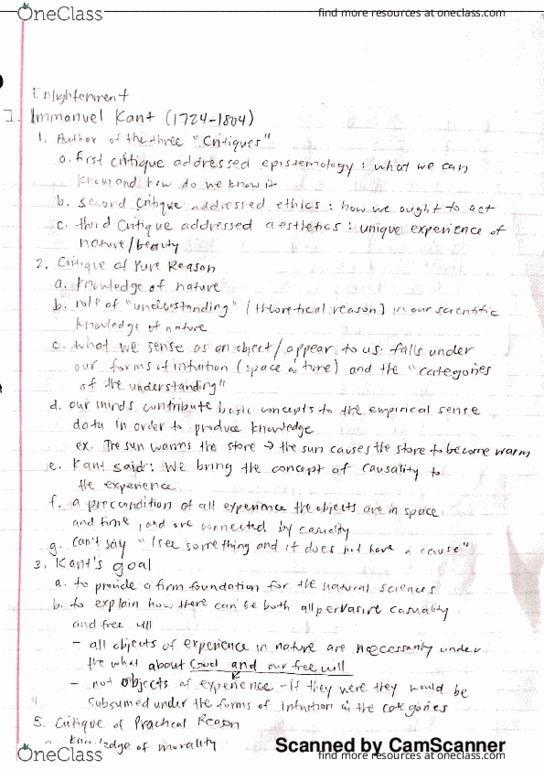 OneClass
find more resources at oneclass.com
Enlightenment
I. Immanuel Kant (1724-1804)
1. Author of the three "Critiques"
a. first critique addressed epistemology: what we can
know and how do we know it
b. second critique addressed ethics: how we ought to act
c. third critique addressed aesthetics: unique experience of
nature/beauty
2. Critique of Pure Reason
a. knowledge of nature
b. role of "understanding" (theoretical reason) in our scientific
knowledge of nature
c. what we sense as an object/appear to us: falls under
our forms of intuition (space & time) and the "categories
of the understanding"
d. our minds contribute basic concepts to the empirical sense
data in order to produce knowledge
ex. The sun warms the stone → the sun causes the stone to become warm
e. Kant said: We bring the concept of causality to
the experience
f. a precondition of all experience the objects are in space
and time, and are connected by casuality
g. can't say "I see something and it does not have a cause"
3. Kant's goal
a. to provide a firm foundation for the natural sciences
b. to explain how there can be both all pervasive casuality
and free will
- all objects of experience in nature are necessarily under
the what about God and our free will
- not objects of experience - if they were they would be
subsumed under the forms of intuition in the categories
5. Critique of Practical Reason
a. knowledge of morality
Scanned by CamScanner
OneClass
find more resources at oneclass.com